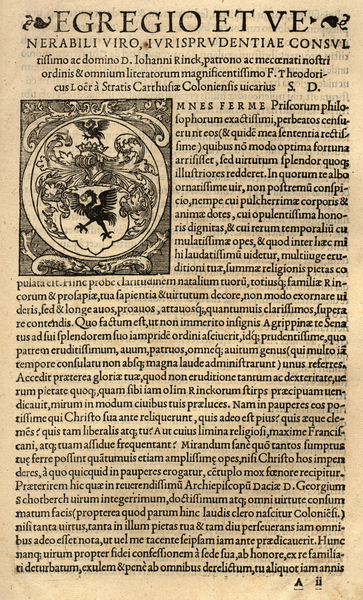 EGREGIO ET VE
NERABILI VIRO, IVRISPRVDENTIAE CONSVL
tissimo ac domino D. Iohanni Rinck, patrono ac mecœnati nostri
ordinis & omnium literatorum magnificentissimo F. Theodori-
cus Loër à Stratis Carthusiæ Coloniensis uicarius S. D.
OMNES FERME Priscorum philo-
sophorum exactissimi, perbeatos censue
runt eos (& quidē mea sententia rectis-
sime) quibus nō modo optima fortuna
arrisisset, sed uirtutum splendor quoq;
illustriores redderet. In quorum te albo
ornatissime uir, non postremū conspi-
cio, nempe cui pulcherrimæ corporis &
animæ dotes, cui opulentissima hono-
ris dignitas, & cui rerum temporaliū cu
mulatissimæ opes, & quod inter hæc mi
hi laudatissimū uidetur, multiiuge eru-
ditioni tuæ, summæ religionis pietas co
pulata est. Hinc probe claritudinem natalium tuorū, totiusq; familiæ Rin-
corum & prosapiæ, tua sapientia & uirtutum decore, non modo exornare ui
deris, sed & longe auos, proauos, attauosq;, quantumuis clarissimos, supera
re contendis. Quo factum est, ut non immerito insignis Agrippinæ Sena
tus ad sui splendorem suo iampridē ordini asciuerit, idq; prudentissime, quo
patrem eruditissimum, auum, patruos, omneq; auitum genus (qui multo iā
tempore consulatu non absq; magna laude administrarunt) unus referres.
Accedit præterea gloriæ tuæ, quod non eruditione tantum ac dexteritate, ue
rum pietate quoq;, quam sibi iam olim Rinckorum stirps præcipuam uen-
dicauit, mirum in modum ciuibus tuis præluces. Nam in pauperes eos po-
tissime qui Christo sua ante reliquerunt, quis adeo est pius? quis æque cle-
mēs? quis tam liberalis atq; tu? Aut cuius limina religiosi, maxime Francis-
cani, atq; tuam assidue frequentant? Mirandum sane quō tantos sumptus
tuæ ferre possint quātumuis etiam amplissimæ opes, nisi Christo hos impen
deres, à quo quicquid in pauperes erogatur, cētuplo mox fœnore recipitur.
Præterirem hic quæ in reuerendissimū Archiepiscopū Daciæ D. Georgium
Schotberch uirum integerrimum, doctissimum atq; omni uirtute consum-
matum facis (propterea quod parum hinc laudis clero nascitur Coloniēsi)
nisi tanta uirtus, tanta in illum pietas tua & tam diu perseuerans iam omni
bus adeo esset nota, ut uel me tacente seipsam iam ante prædicauerit. Hunc
nanq; uirum propter fidei confessionem à sede sua, ab honore, ex re familia-
ri deturbatum, exulem & penè ab omnibus derelictum, tu aliquot iam annis
A ii